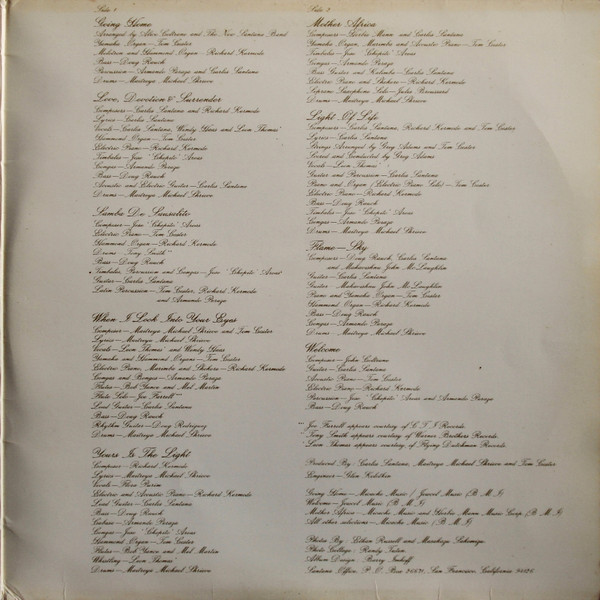 Side 1
Going Home
Arranged by Alice Coltrane and The New Santana Band
Yamaha Organ—Tom Coster
Mellotron and Hammond Organ—Richard Kermode
Bass—Doug Rauch
Percussion—Armando Peraza and Carlos Santana
Drums—Maitreya Michael Shrieve
Love, Devotion & Surrender
Composers—Carlos Santana and Richard Kermode
Lyrics—Carlos Santana
Vocals—Carlos Santana, Wendy Haas and Leon Thomas*
Hammond Organ—Tom Coster
Electric Piano—Richard Kermode
Timbales—Jose "Chepito" Areas
Congas—Armando Peraza
Bass—Doug Rauch
Acoustic and Electric Guitar—Carlos Santana
Drums—Maitreya Michael Shrieve
Samba De Sausalito
Composer—Jose "Chepito" Areas
Electric Piano—Tom Coster
Hammond Organ—Richard Kermode
Drums—Tony Smith**
Bass—Doug Rauch
Timbales, Percussion and Congas—Jose "Chepito" Areas
Guitar—Carlos Santana
Latin Percussion—Tom Coster, Richard Kermode
and Armando Peraza
When I Look Into Your Eyes
Composers—Maitreya Michael Shrieve and Tom Coster
Lyrics—Maitreya Michael Shrieve
Vocals—Leon Thomas* and Wendy Haas
Yamaha and Hammond Organs—Tom Coster
Electric Piano, Marimba and Shekere—Richard Kermode
Congas and Bongos—Armando Peraza
Flutes—Bob Yance and Mel Martin
Flute Solo—Joe Farrell***
Lead Guitar—Carlos Santana
Bass—Doug Rauch
Rhythm Guitar—Doug Rodriguez
Drums—Maitreya Michael Shrieve
Yours Is The Light
Composer—Richard Kermode
Lyrics—Maitreya Michael Shrieve
Vocals—Flora Purim
Electric and Acoustic Piano—Richard Kermode
Lead Guitar—Carlos Santana
Bass—Doug Rauch
Cabasa—Armando Peraza
Congas—Jose "Chepito" Areas
Hammond Organ—Tom Coster
Flutes—Bob Yance and Mel Martin
Whistling—Leon Thomas
Drums—Maitreya Michael Shrieve
Side 2
Mother Africa
Composers—Herbie Mann and Carlos Santana
Yamaha Organ, Marimba and Acoustic Piano—Tom Coster
Timbales—Jose "Chepito" Areas
Congas—Armando Peraza
Bass Guitar and Kalimba—Carlos Santana
Electric Piano and Shekere—Richard Kermode
Soprano Saxophone Solo—Jules Broussard
Drums—Maitreya Michael Shrieve
Light Of Life
Composers—Carlos Santana, Richard Kermode and Tom Coster
Lyrics—Carlos Santana
Strings Arranged by Greg Adams and Tom Coster
Scored and Conducted by Greg Adams
Vocals—Leon Thomas*
Guitar and Percussion—Carlos Santana
Piano and Organ (Electric Piano Solo)—Tom Coster
Electric Piano—Richard Kermode
Bass—Doug Rauch
Timbales—Jose "Chepito" Areas
Congas—Armando Peraza
Drums—Maitreya Michael Shrieve
Flame—Sky
Composers—Doug Rauch, Carlos Santana
and Mahavishnu John McLaughlin
Guitar—Carlos Santana
Guitar—Mahavishnu John McLaughlin
Piano and Yamaha Organ—Tom Coster
Hammond Organ—Richard Kermode
Bass—Doug Rauch
Congas—Armando Peraza
Drums—Maitreya Michael Shrieve
Welcome
Composer—John Coltrane
Guitar—Carlos Santana
Acoustic Piano—Tom Coster
Electric Piano—Richard Kermode
Percussion—Jose "Chepito" Areas and Armando Peraza
Bass—Doug Rauch
***Joe Farrell appears courtesy of C T I Records.
**Tony Smith appears courtesy of Warner Brothers Records.
*Leon Thomas appears courtesy of Flying Dutchman Records.
Produced By—Carlos Santana, Maitreya Michael Shrieve and Tom Coster
Engineer—Glen Kolotkin
Going Home—Music / Jowcol Music (B.M.I)
Welcome—Jowcol Music (B.M.I)
Mother Africa—Music and Herbie Mann Music Corp. (B.M.I)
All other selections—Music (B.M.I)
Photos By—Ethan Russell and
Photo Collage—
Album Design—
Santana Office, P. O. Box 26671, San Francisco, California 94126